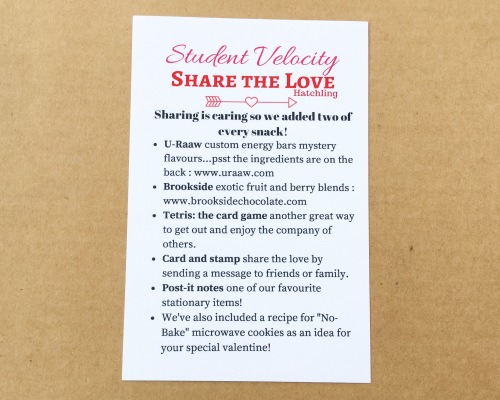 Student Velocity
SHARE THE LOVE
Hatchling
Sharing is caring so we added two of
every snack!
• U-Raaw custom energy bars mystery
flavours...psst the ingredients are on the
back : www.uraaw.com
• Brookside exotic fruit and berry blends :
www.brooksidechocolate.com
• Tetris: the card game another great way
to get out and enjoy the company of
others.
• Card and stamp share the love by
sending a message to friends or family.
• Post-it notes one of our favourite
stationary items!
• We've also included a recipe for "No-
Bake" microwave cookies as an idea for
your special valentine!